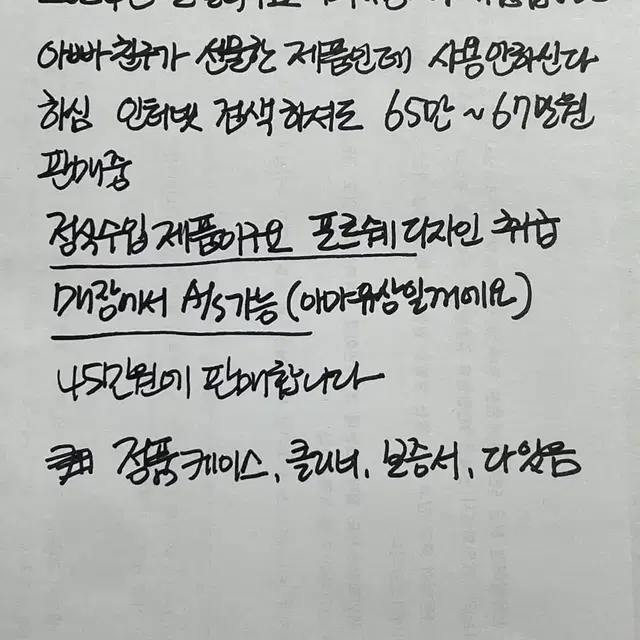 아빠친구가 선물한 제품인데 사용안하신다
하심 인터넷 검색하셔도 65만 ~ 67만원
판매중
정식수입 제품이구요 포르쉐디자인 취급
매장에서 A/s가능 (아마유상일거에요)
45만원에 판매합니다
정품케이스, 클리너, 보증서, 다있음